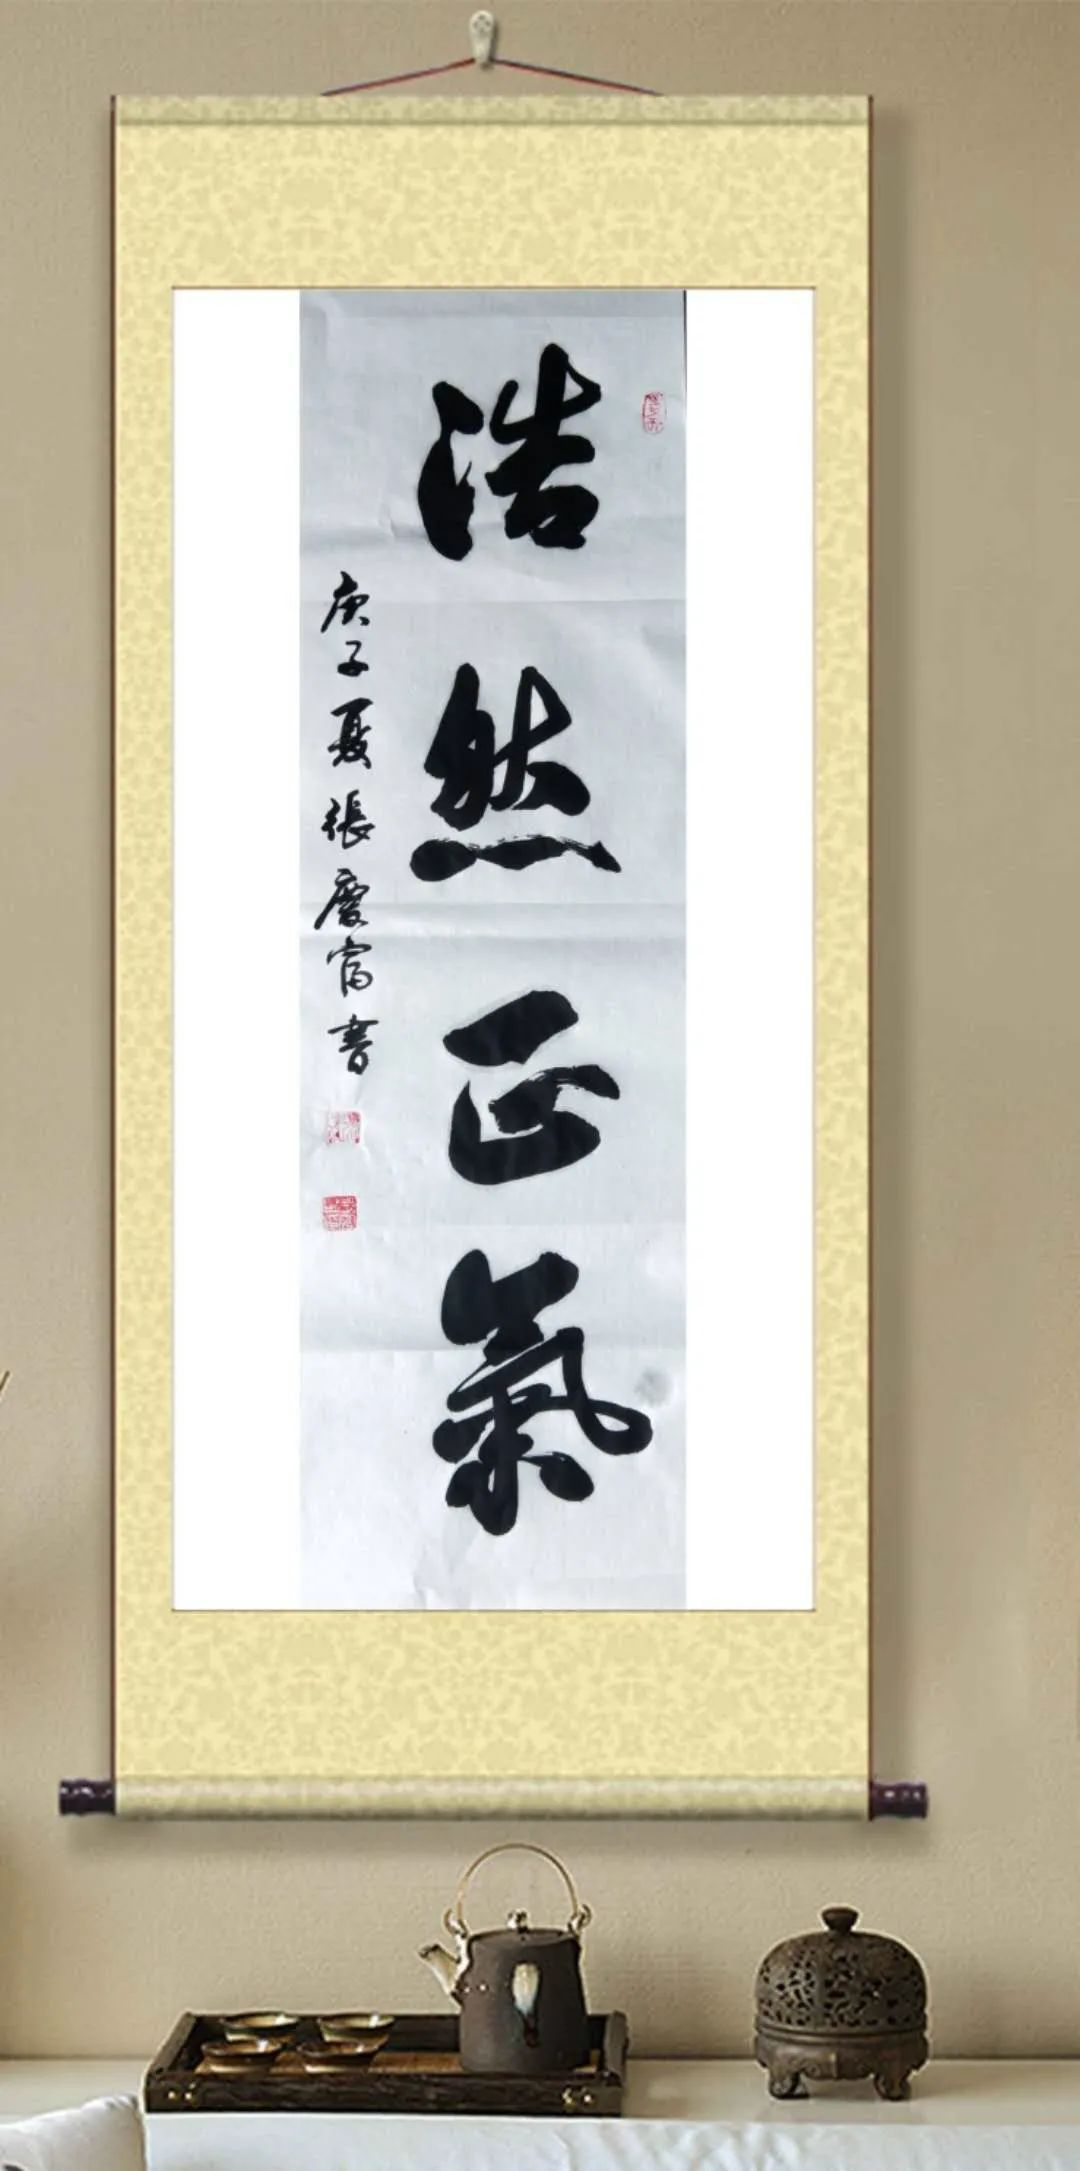 浩然正氣
庚子夏張慶富書